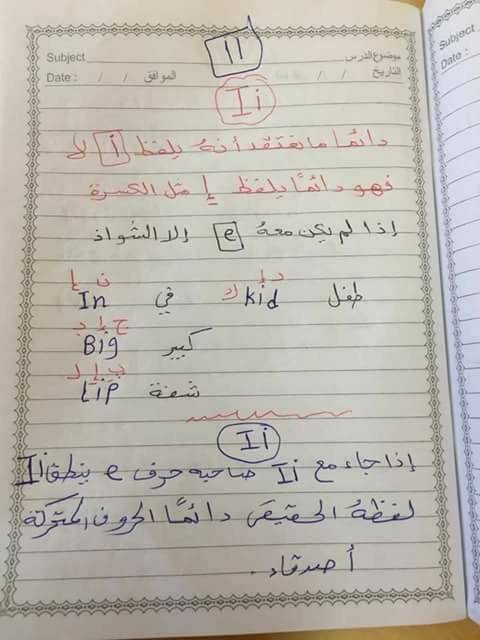 Subject موضوع الدرس
Date : / / الموافق / / التاريخ
11
Ii
دائمًا ما نعتقد أنهُ يلفظ أ لا
فهو دائمًا يلفظ إ مثل الكسرة
إذا لم يكن معهُ e إلا الشواذ
ك إ د ن إ
طفل kid في In
ج إ ب
كبير Big
ب إ ل
شفة Lip
Ii
إذا جاء مع Ii صاحبه حرف e ينطق Ii
لفظهُ الحقيقي دائمًا الحروف المتحركة
أصدقاء.
Subject
Date :